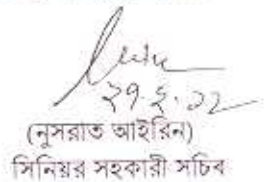 ২৭.২.২২
(নুসরাত আইরিন)
সিনিয়র সহকারী সচিব